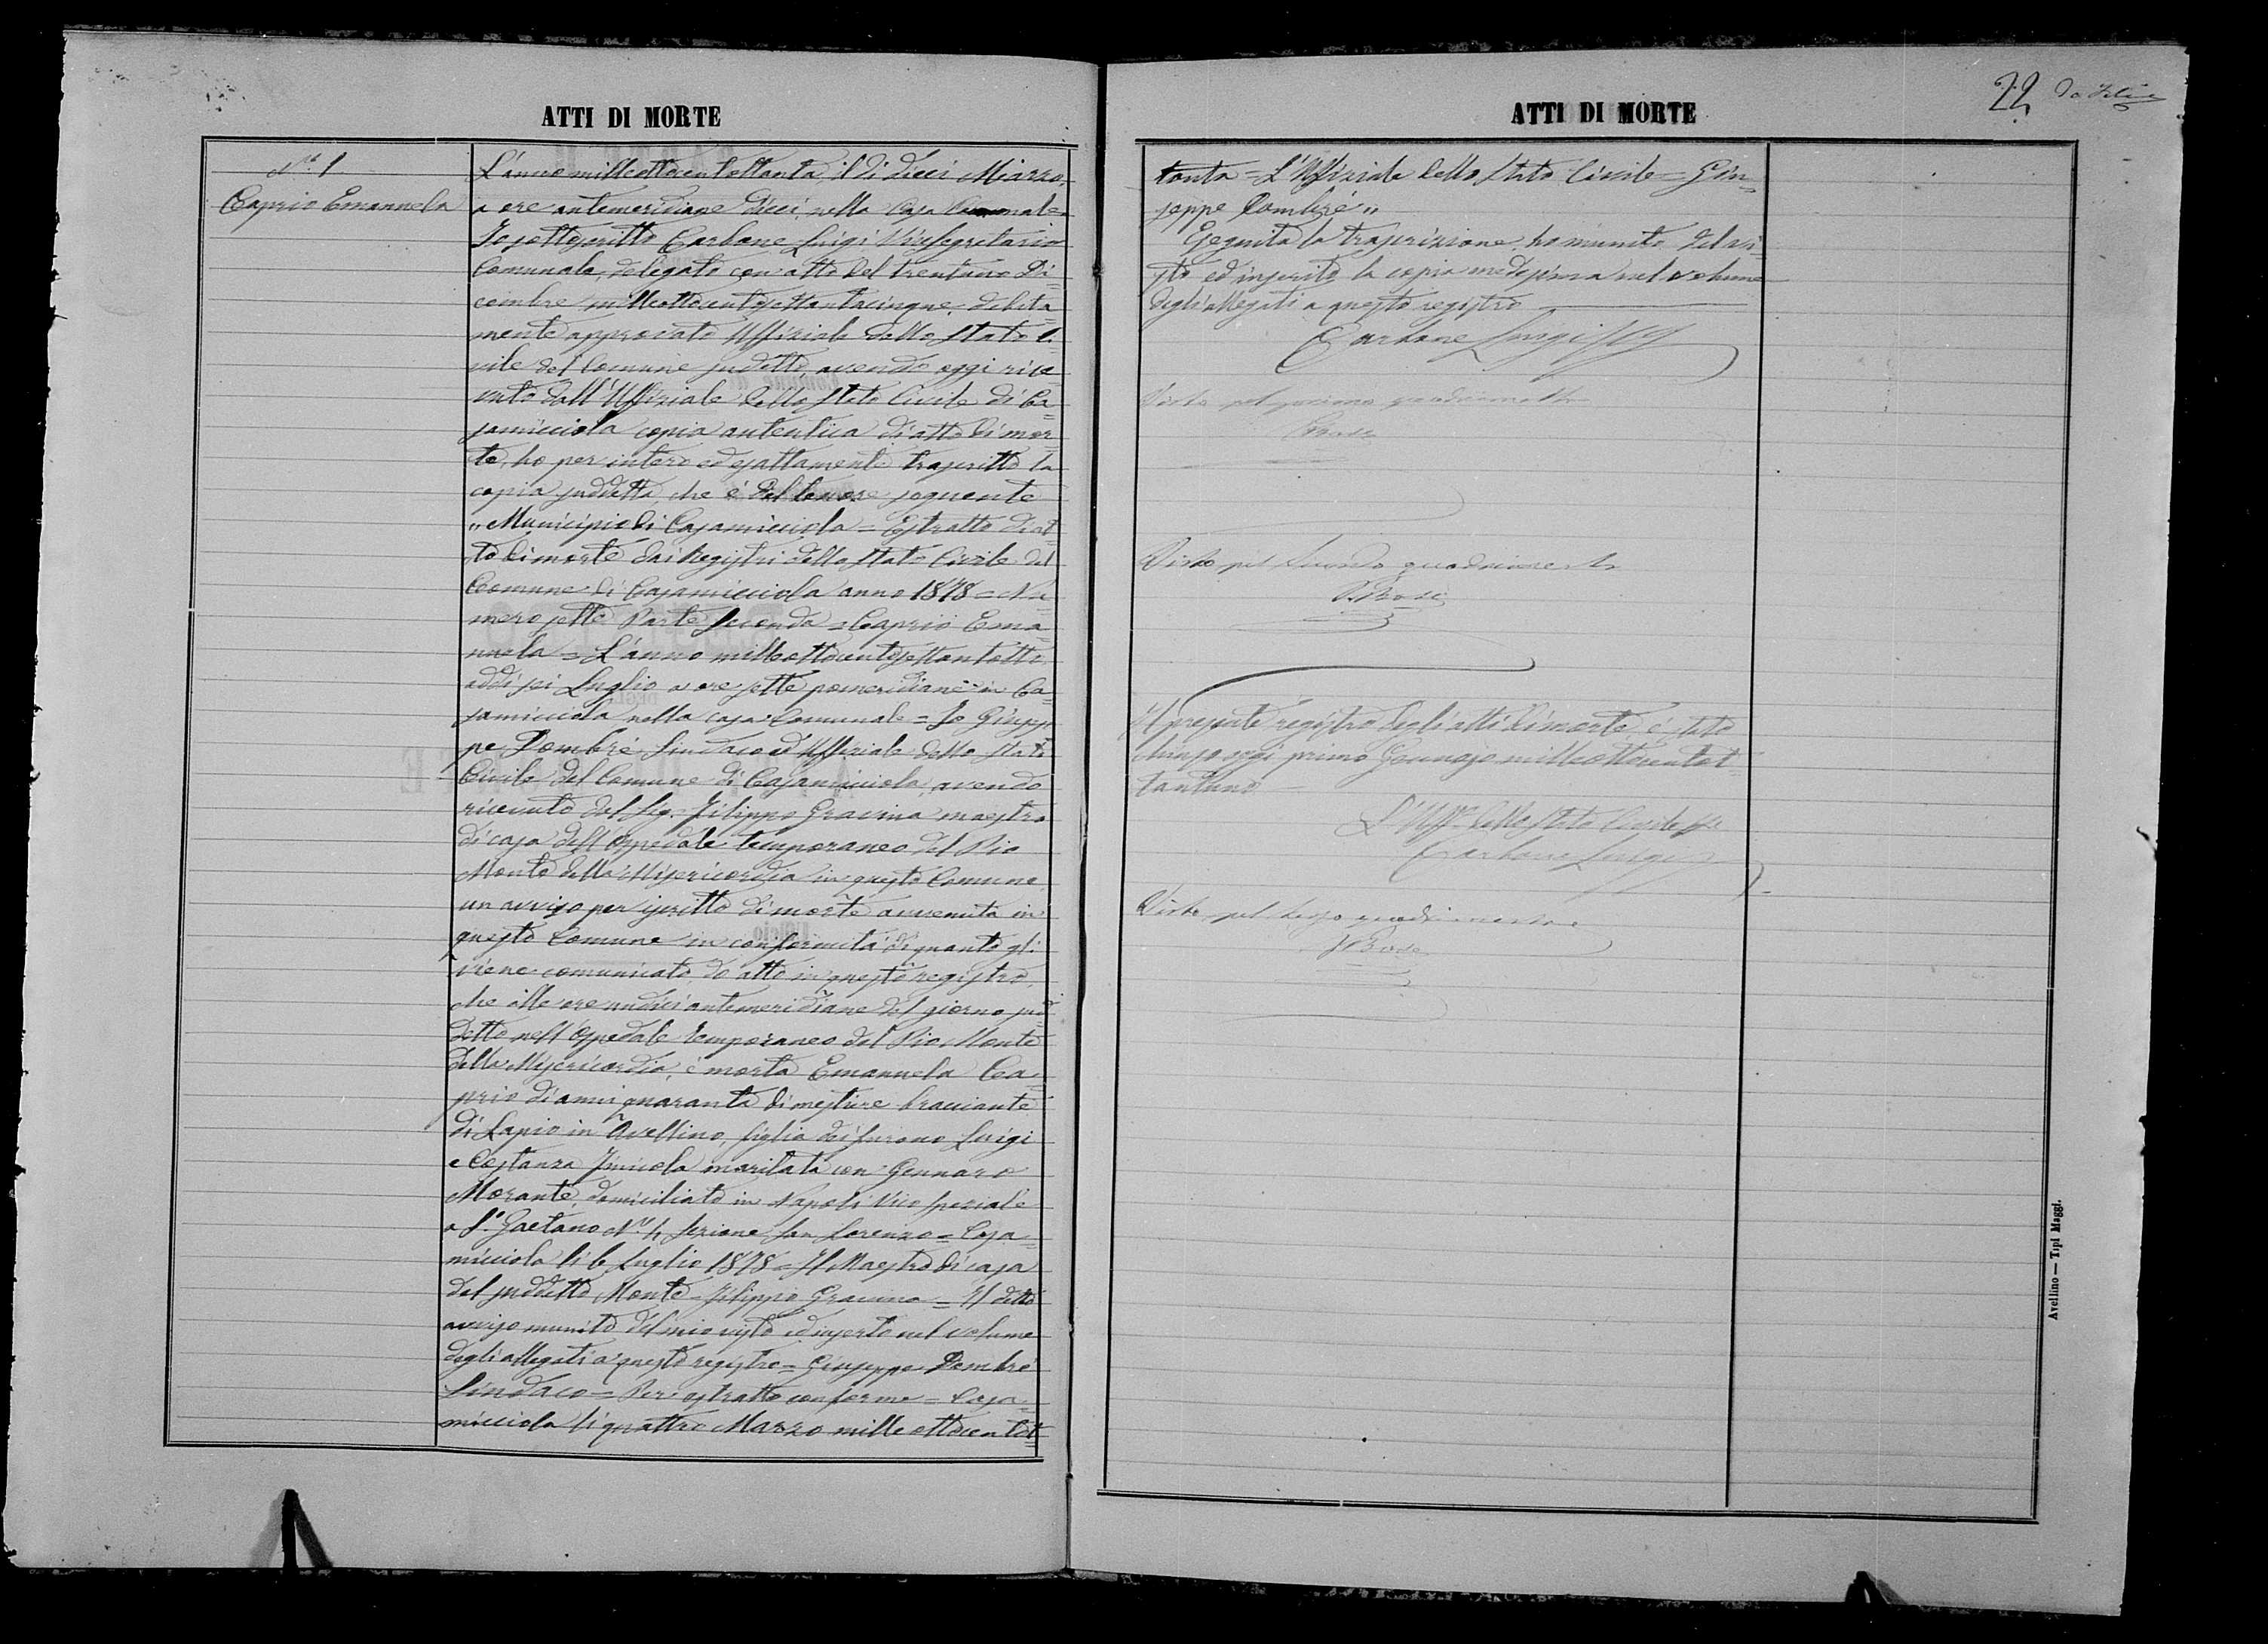 ATTI DI MORTE
N.º 1
Caprio Emanuela
L'anno milleottocentottanta, il dì dieci Marzo,
a ore antimeridiane dieci, nella Casa Comunale
Io sottoscritto Carbone Luigi Vicesegretario
Comunale, delegato con atto del trentuno Di=
cembre milleottocentosettantacinque, debita=
mente approvato Uffiziale dello Stato Ci=
vile del Comune suddetto, avendo oggi rice=
vuto dall'Uffiziale dello Stato Civile di Ca=
samicciola copia autentica di atto di mor=
te, ho per intero ed esattamente trascritto la
copia suddetta, che è del tenore seguente
„ Municipio di Casamicciola = Estratto di at=
to di morte dai Registri dello Stato Civile del
Comune di Casamicciola anno 1878 = Nu=
mero sette Parte Seconda = Caprio Ema=
nuela = L'anno milleottocentosettantotto
addì sei Luglio a ore sette pomeridiane in Ca=
samicciola nella casa Comunale = Io Giusep=
pe Dombrè Sindaco ed Uffiziale dello Stato
Civile del Comune di Casamicciola, avendo
ricevuto dal Sig. Filippo Gravina maestro
di casa dell'Ospedale temporaneo del Pio
Monte della Misericordia in questo Comune,
un avviso per iscritto di morte avvenuta in
questo Comune in conformità di quanto gli
viene comunicato, do atto in questo registro,
che alle ore undici antimeridiane del giorno sud=
detto nell'Ospedale temporaneo del Pio Monte
della Misericordia, è morta Emanuela Ca=
prio di anni quaranta di mestiere bracciante
di Lapio in Avellino, figlia dei furono Luigi
e Costanza Iinicola maritata con Gennaro
Morante, domiciliato in Napoli Vico Speziale
a S. Gaetano N.º 4, sezione San Lorenzo = Casa=
micciola li 6 Luglio 1878 = Il Maestro di casa
del suddetto Monte = Filippo Gravina = Il detto
avviso munito del mio visto ed inserto nel volume
degli allegati a questo registro = Giuseppe Dombrè
Sindaco = Per estratto conforme = Casa=
micciola li quattro Marzo mille ottocentot=
ATTI DI MORTE
22
tanta = L'Uffiziale dello Stato Civile = Giu=
seppe Dombrè „
Eseguita la trascrizione, ho munito del vi=
sto ed inserito la copia medesima nel volume
degli allegati a questo registro
Carbone Luigi
Visto pel primo quadrimestre
Visto pel secondo quadrimestre
Il presente registro degli atti di morte è stato
chiuso oggi primo Gennajo milleottocentot=
tantuno
L'Uff.le dello Stato Civile
Carbone Luigi
Visto pel terzo quadrimestre
Avellino — Tipi Maggi.